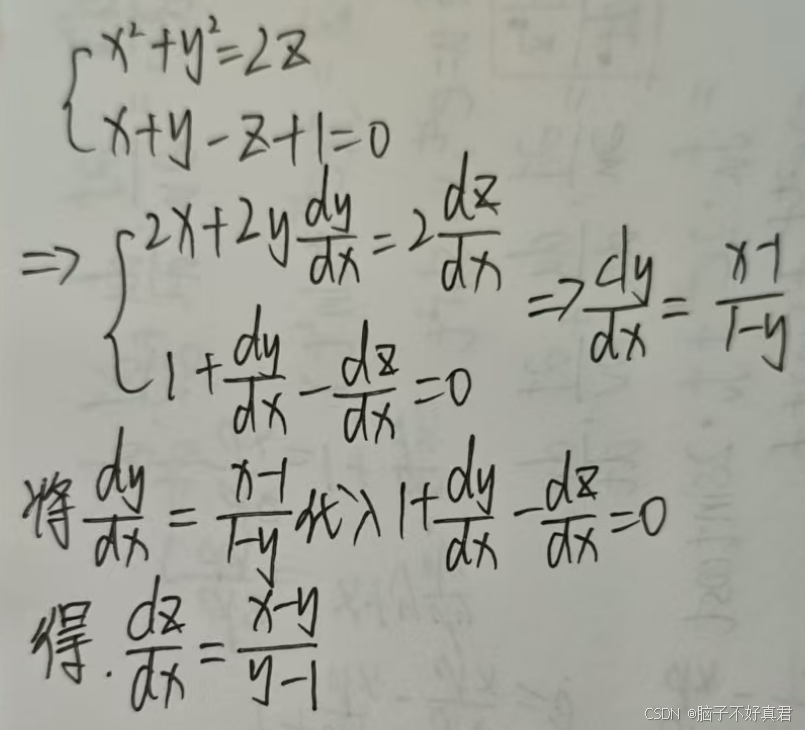 { x²+y²=2z
x+y-z+1=0
⇒ { 2x+2y dy/dx = 2 dz/dx
1+ dy/dx - dz/dx =0 ⇒ dy/dx = x-1/1-y
将 dy/dx = x-1/1-y 代入 1+ dy/dx - dz/dx =0
得. dz/dx = x-y/y-1
CSDN @脑子不好真君